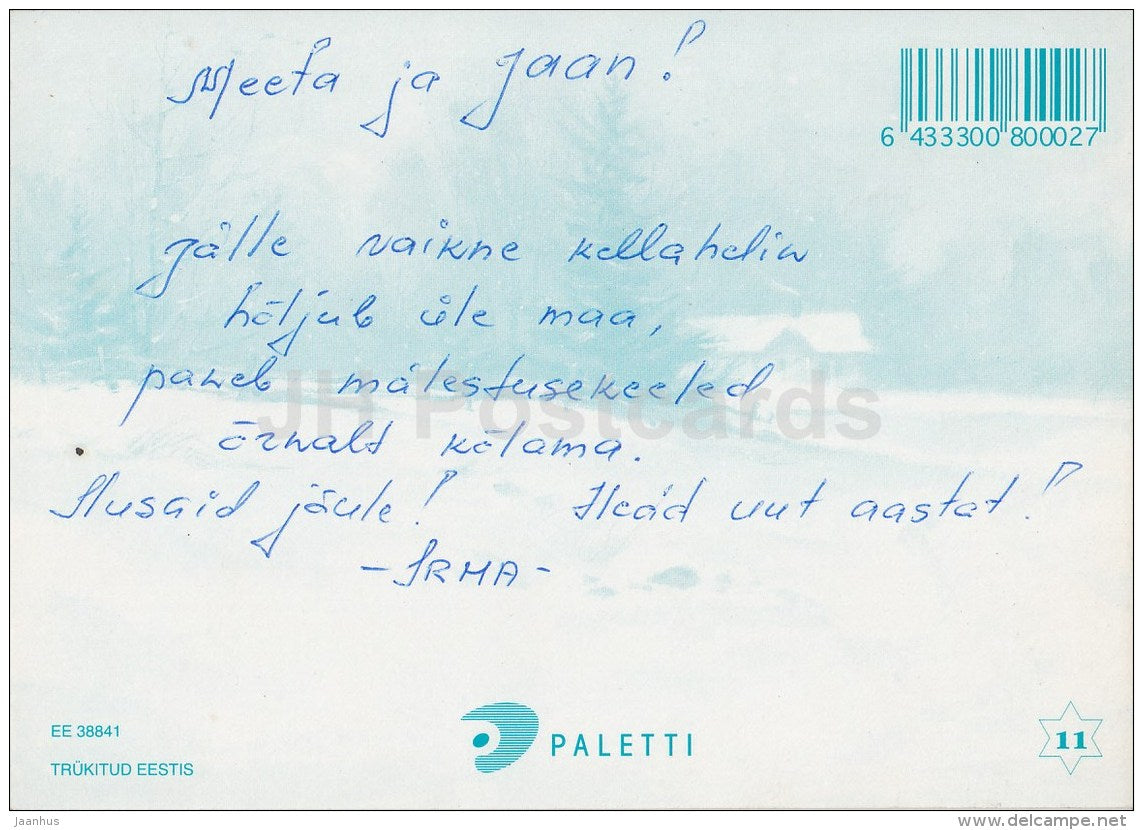 Meeta ja Jaan!
6 433300 800027
Jälle vaikne kellahelin
hõljub üle maa,
paneb mälestusekeeled
õrnalt kõlama.
Ilusaid jõule! Head uut aastat!
- IRMA -
JH Postcards
EE 38841
TRÜKITUD EESTIS
PALETTI
11
Jaanhus
www.delcampe.net